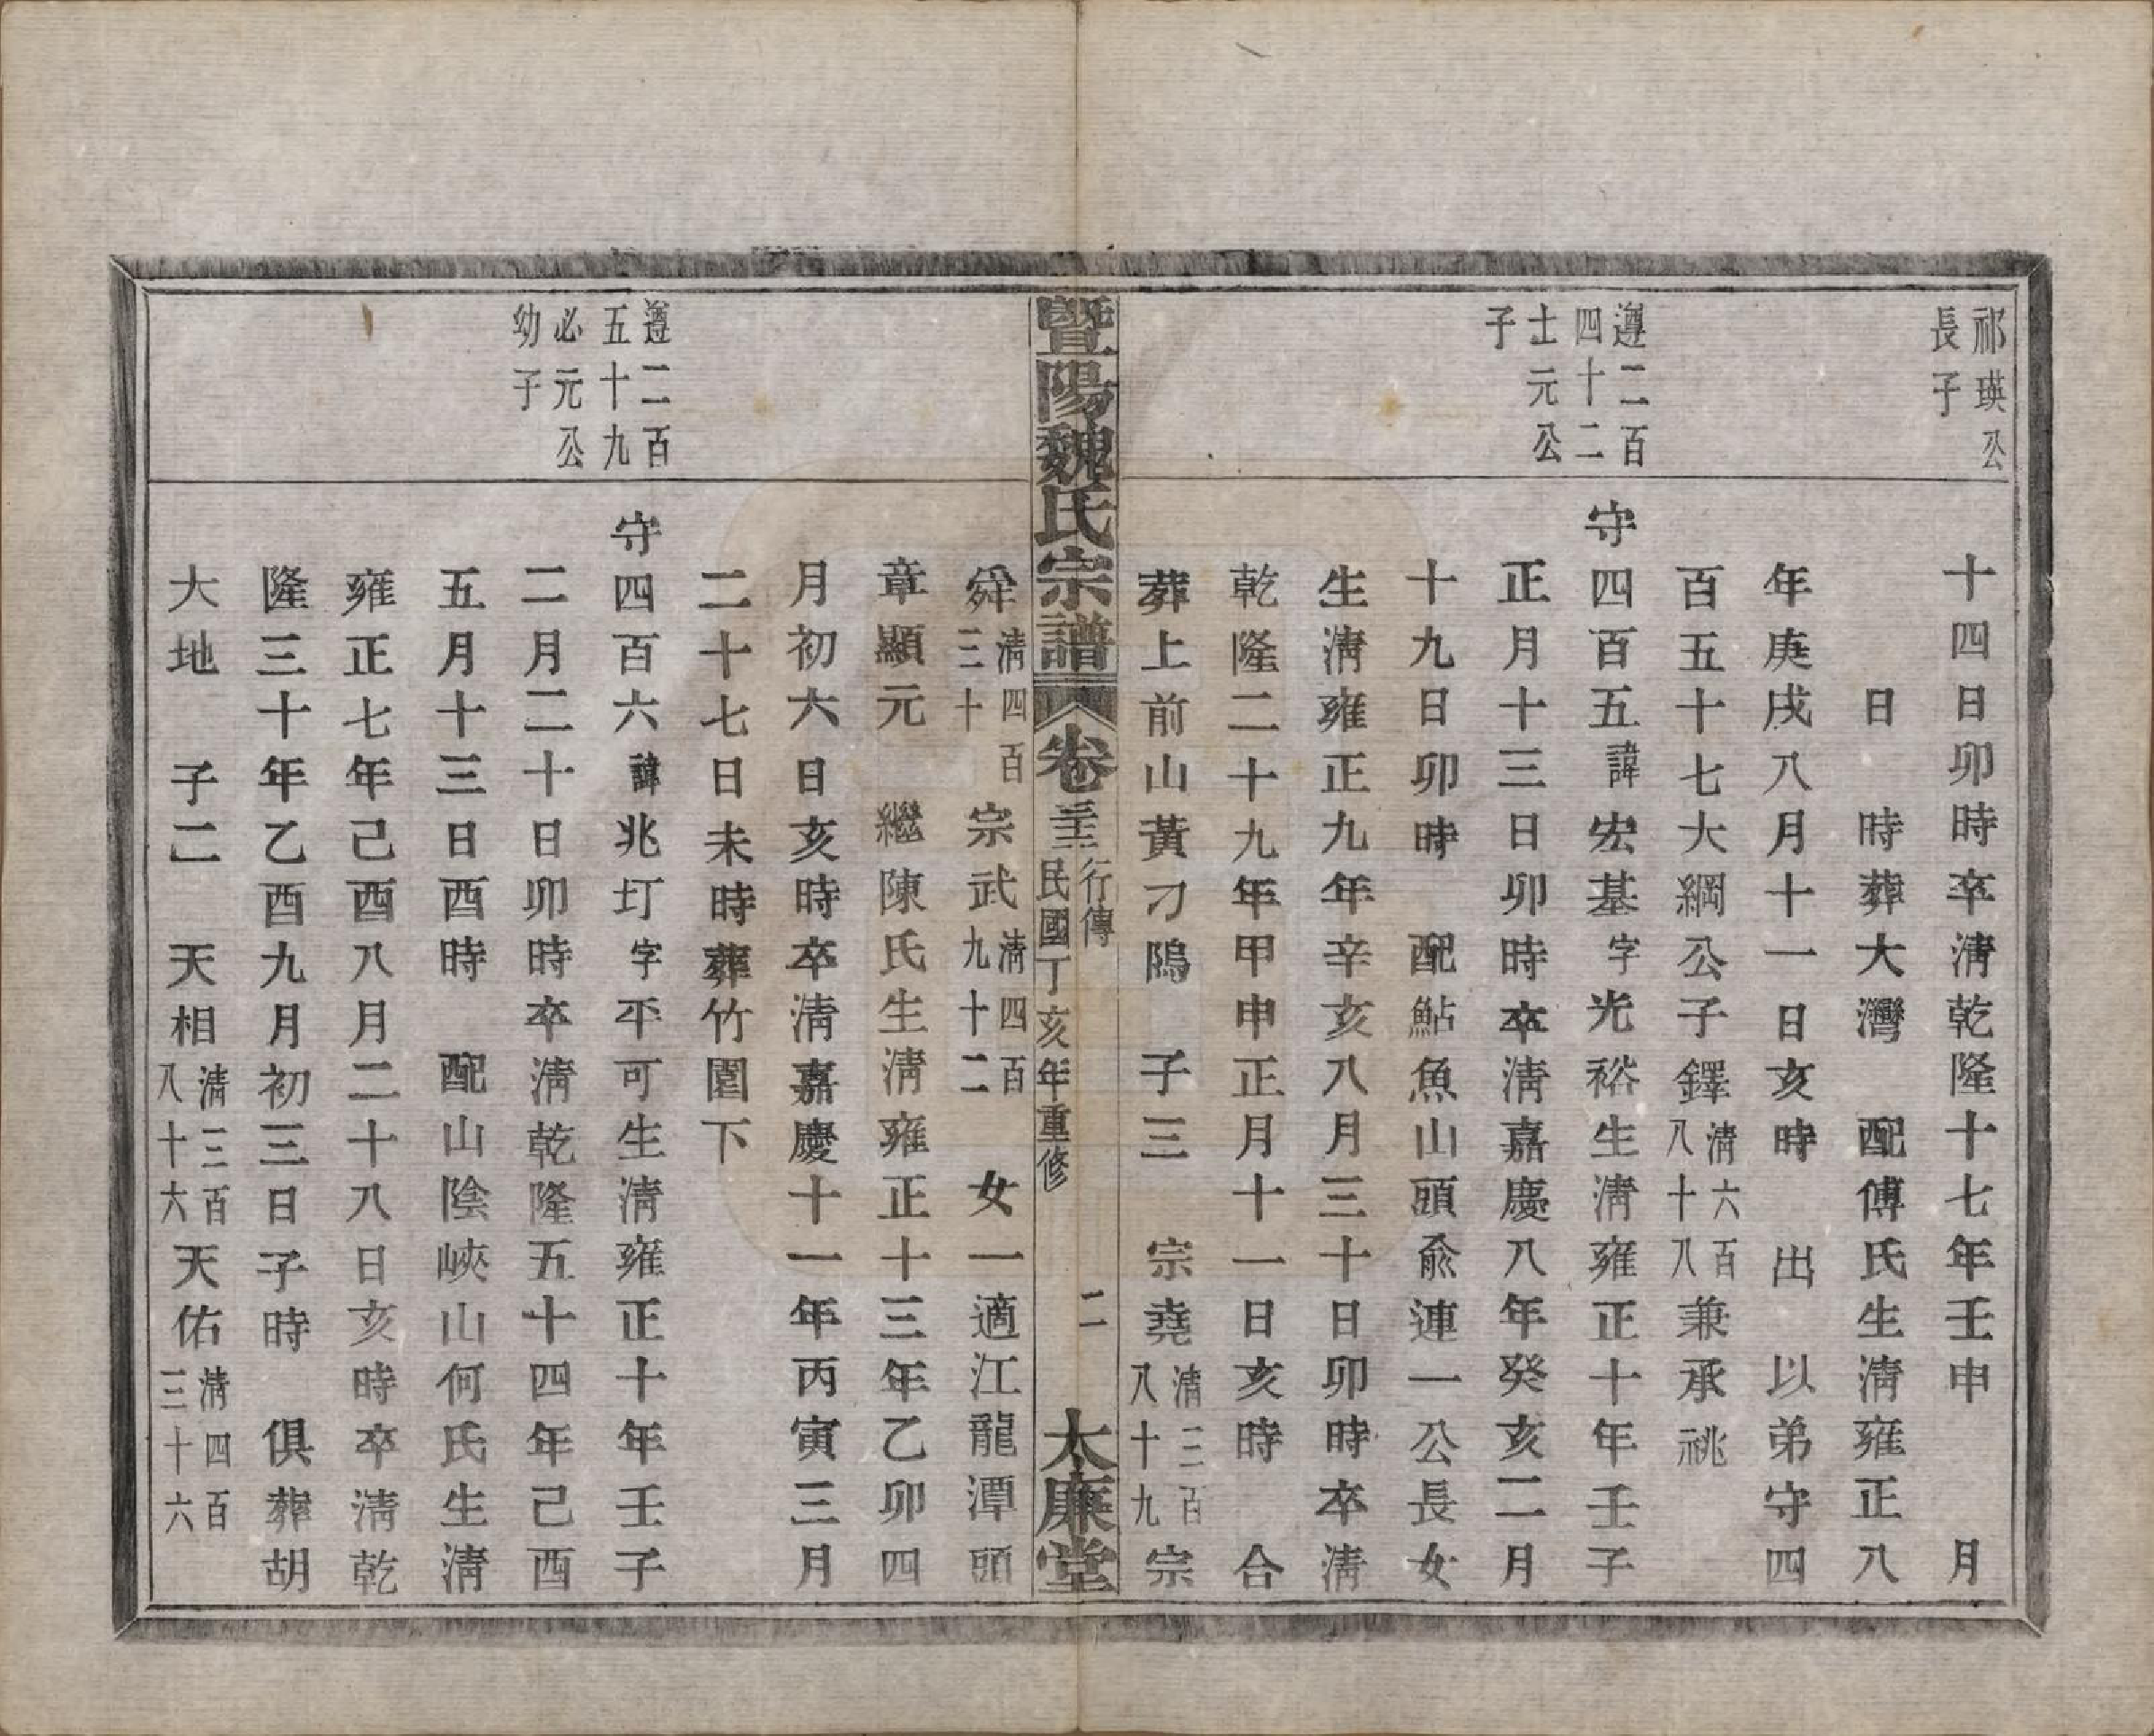 祁瑛公
長子
十四日卯時卒淸乾隆十七年壬申 月
日 時葬大灣 配傅氏生淸雍正八
年庚戌八月十一日亥時 出 以弟守四
百五十七大綱公子鐸淸六百八十八兼承祧
遵二百
四十二
士元公
子
守四百五諱宏基字光裕生淸雍正十年壬子
正月十三日卯時卒淸嘉慶八年癸亥二月
十九日卯時 配鮎魚山頭兪連一公長女
生淸雍正九年辛亥八月三十日卯時卒淸
乾隆二十九年甲申正月十一日亥時 合
葬上前山黃刁隝 子三 宗堯淸三百八十九宗
暨陽魏氏宗譜 卷三十三 行傳 民國丁亥年重修 二 太廉堂
舜淸四百三十 宗武淸四百九十二 女一適江龍潭頭
章顯元 繼陳氏生淸雍正十三年乙卯四
月初六日亥時卒淸嘉慶十一年丙寅三月
二十七日未時葬竹園下
遵二百
五十九
必元公
幼子
守四百六諱兆圢字平可生淸雍正十年壬子
二月二十日卯時卒淸乾隆五十四年己酉
五月十三日酉時 配山陰峽山何氏生淸
雍正七年己酉八月二十八日亥時卒淸乾
隆三十年乙酉九月初三日子時 俱葬胡
大地 子二 天相淸三百八十六天佑淸四百三十六